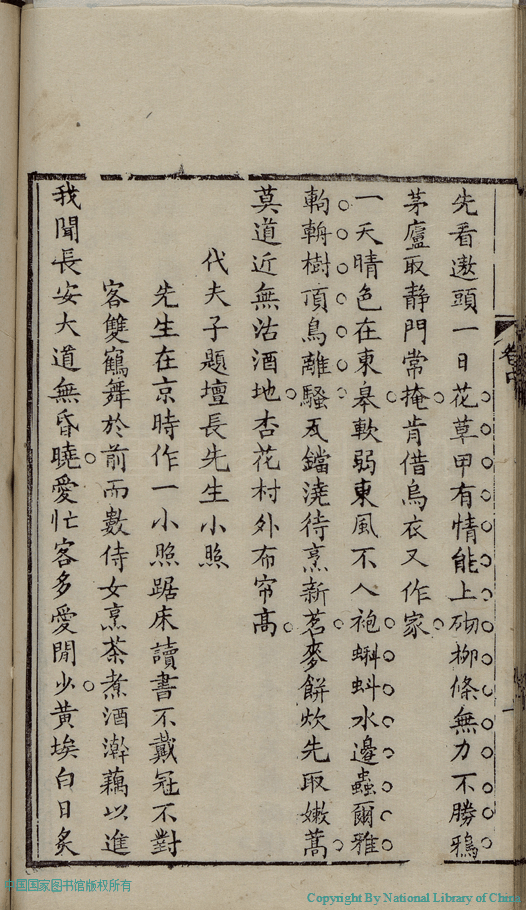 先看遨頭一日花草甲有情能上砌柳條無力不勝鴉
茅廬取静門常掩肯借烏衣又作家
一天晴色在東皋軟弱東風不入袍蝌蚪水邊蟲爾雅
輈輈樹頂鳥離騷瓦鐺澆待烹新茗麥餅炊先取嫩蒿
莫道近無沽酒地杏花村外布帘高
代夫子題壇長先生小照
先生在京時作一小照踞床讀書不戴冠不對
客雙鶴舞於前而數侍女烹茶煮酒澣藕以進
我聞長安大道無昏曉愛忙客多愛閒少黄埃白日炙
卷中
一
中国国家图书馆版权所有
Copyright By National Library of China